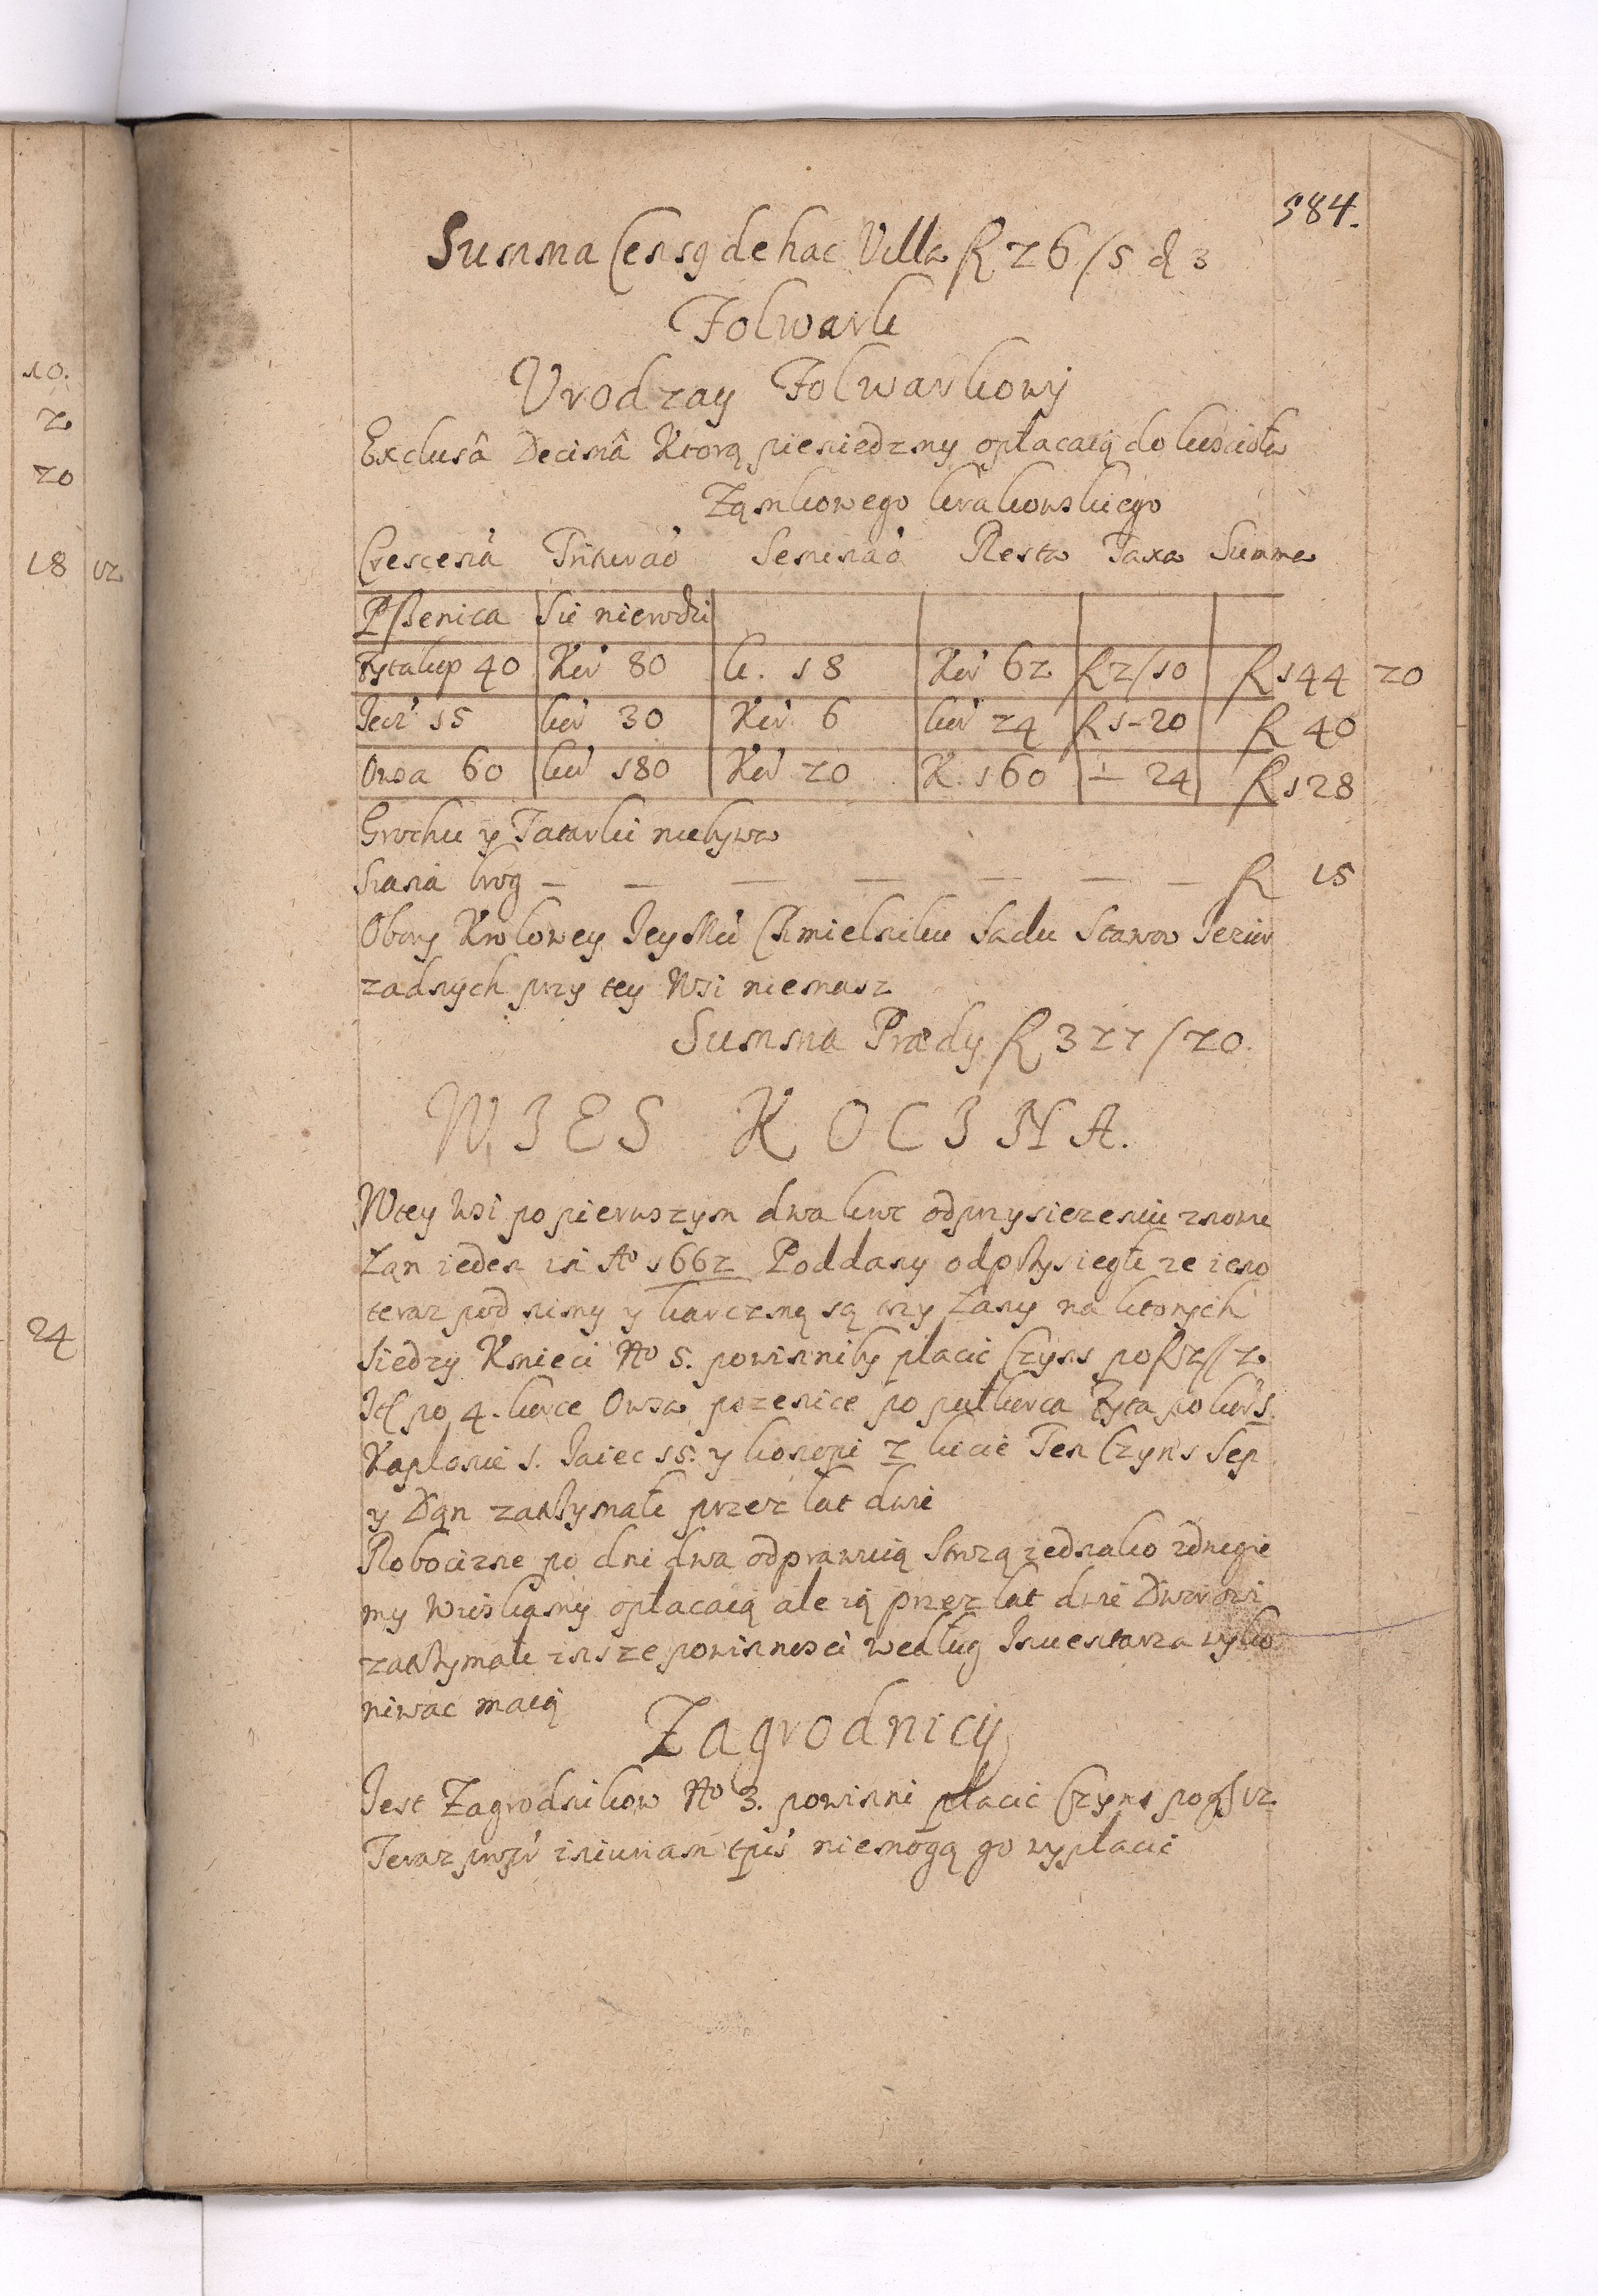 10.
2
20
18 12
24
584.
Summa Censq de hac Villa fl 26 / 5 d 3
Folwark
Vrodzay Folwarkowy
Exclusâ Decimâ Ktorą pieniedzmy opłacaią do kościoła
Zamkowego krakowskiego
Crescen̄a Trituraō Seminaō Resta Taxa Summa
Pszenica Sie nierodzi
Żyta kop 40 Kor̄ 80 k. 18 Kor̄ 62 fl 2/10 fl 144 20
Jecz̄ 15 kor̄ 30 Kor̄ 6 kor̄ 24 fl 1-20 fl 40
Owsa 60 kor̄ 180 Kor̄ 20 K. 160 — 24 fl 128
Grochu y Tatarki niebywa
Siana brog — — — — — — — fl 15
Obory Krolowey Jey Mci Chmielniku Sadu Stawow Jezior
zadnych przy tey Wsi niemasz
Summa Prædy fl 327 / 20.
WIES KOCINA.
Wtey wsi po pierwszym dwakroc odprzysiezeniu znowu
Łan ieden in Ao 1662 Poddany odprzysiegli ze ieno
teraz pod nimy y karczmą są trzy Łany na ktorych
siedzy Kmieci No 5. powinniby płacic Czyns po fl 2 / 2.
It po 4. korce Owsa pszenice po pułkorca Żyta po kor̄ 1.
Kapłonie 1. Jaiec 15. y konopi 2 kicie Ten Czyns Sep
y Dan zatrzymali przez lat dwie
Robocizne po dni dwa odprawuią Stroza iednako zdrugie
my Wieskamy opłacaią ale ią przez lat dwie Dworowi
zatrzymali insze powinnosci według Inuentarza wyko
niwac maią
Zagrodnicy
Jest Zagrodnikow No 3. powinni płacic Czyns po gr 12.
Teraz iniuriam niemogą go wypłacic